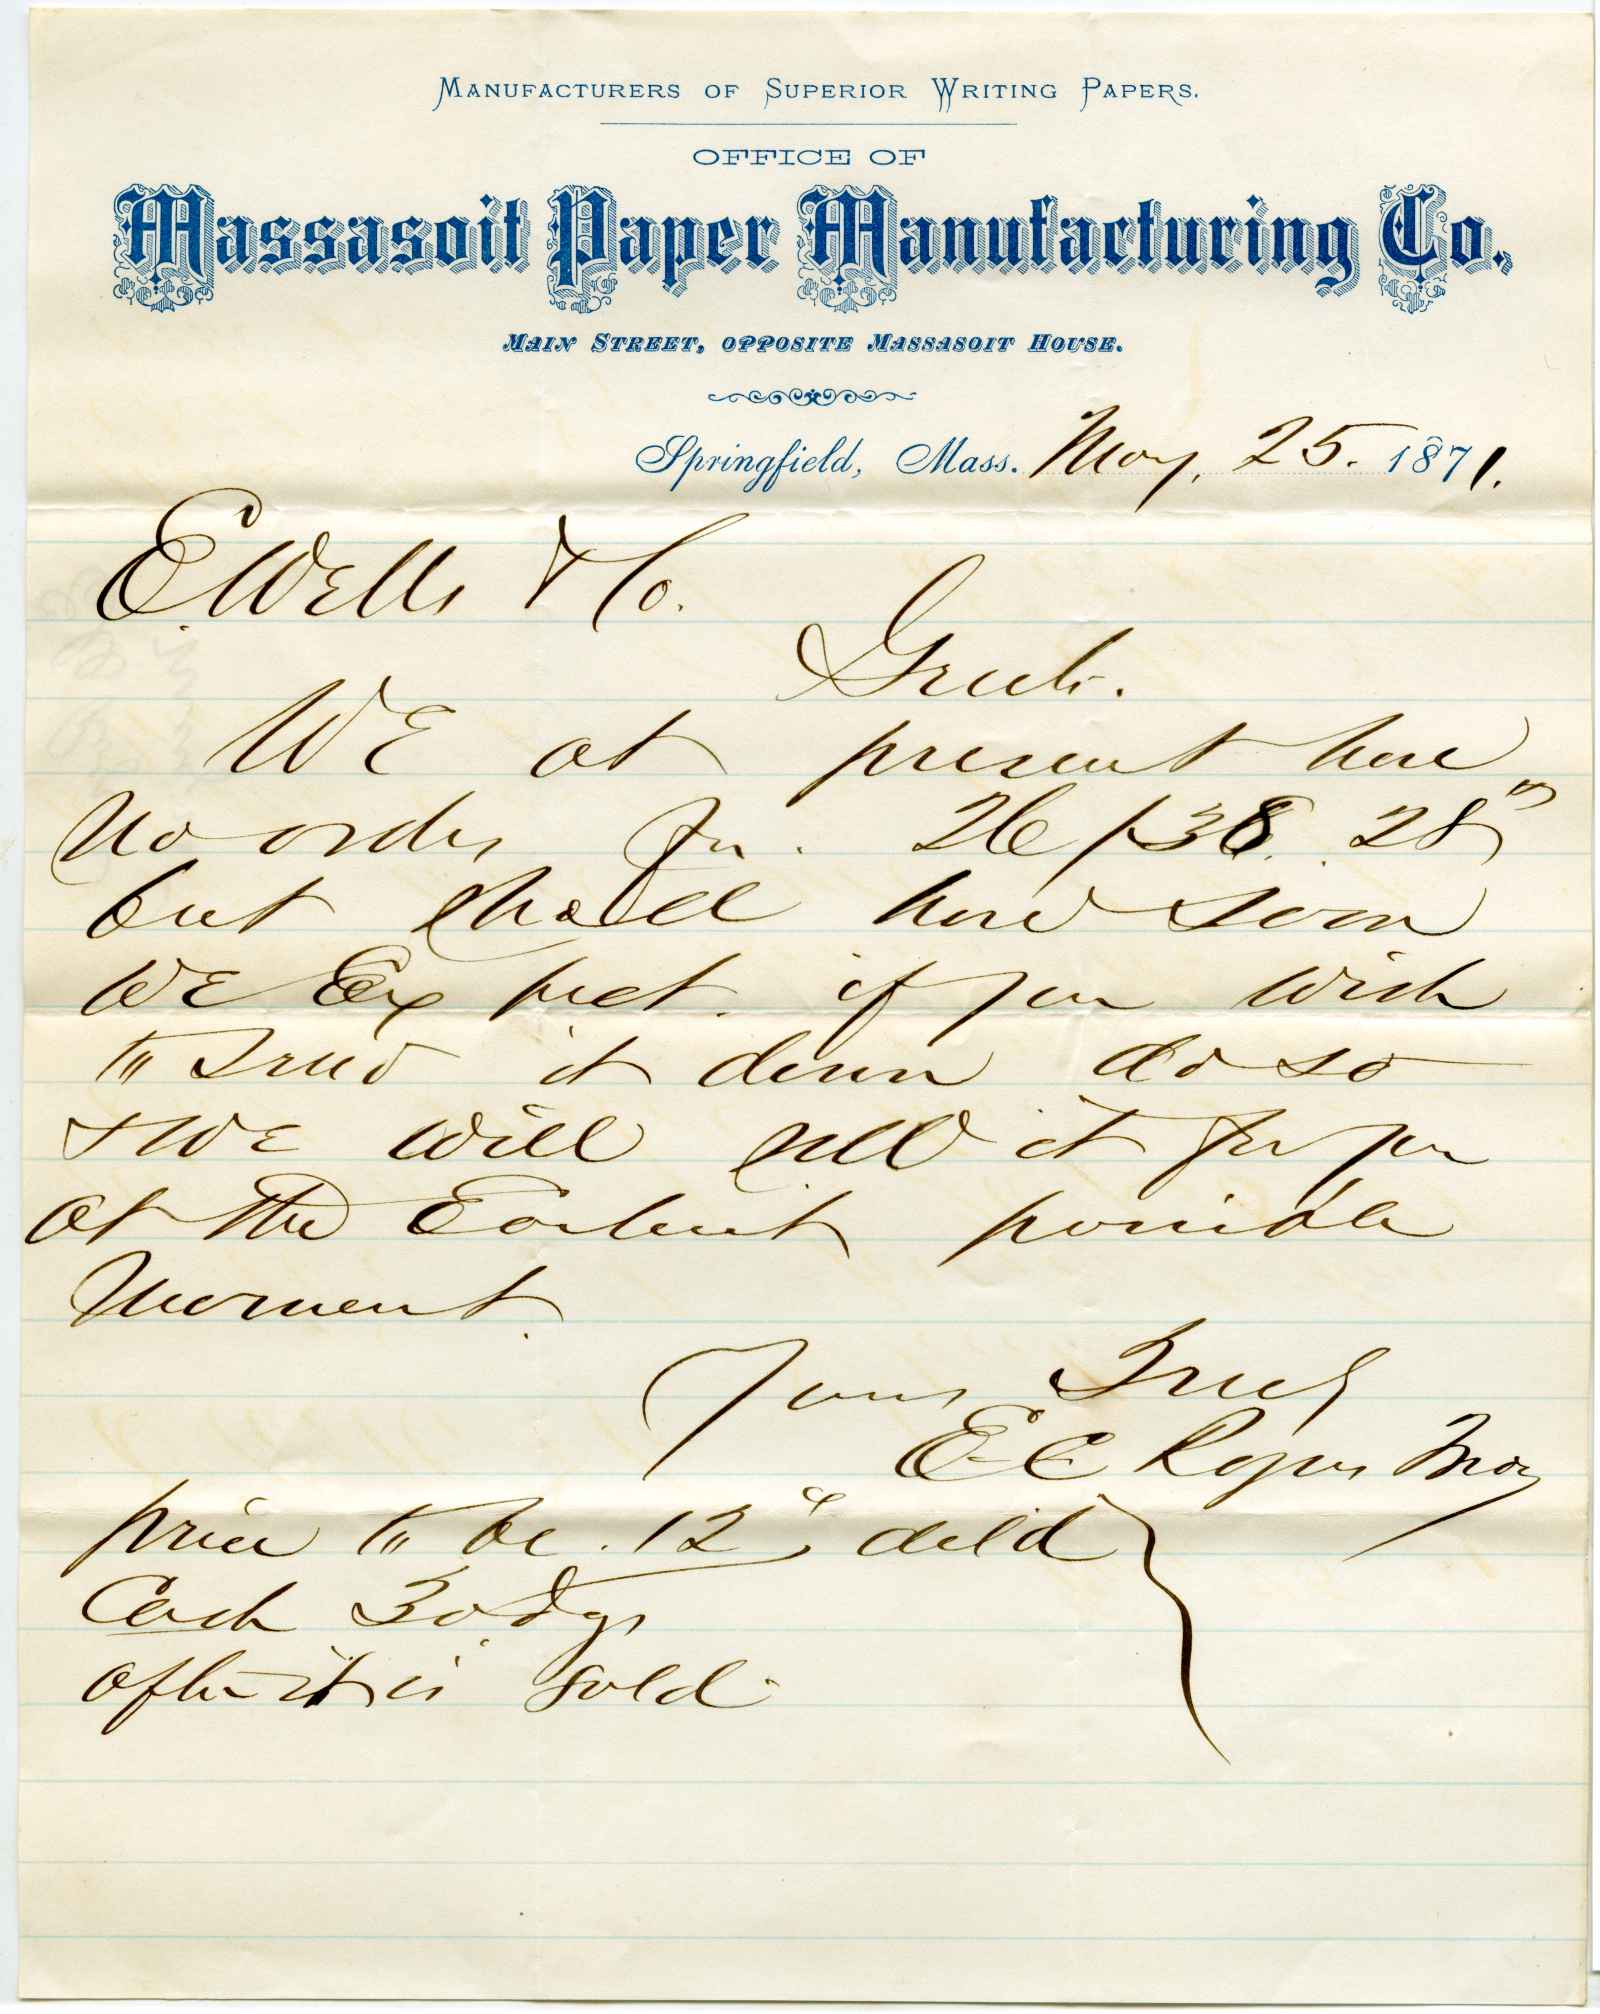 Manufacturers of Superior Writing Papers.
OFFICE OF
Massasoit Paper Manufacturing Co.,
Main Street, opposite Massasoit House.
Springfield, Mass. May. 25. 1871.
E. Wells & Co.
Gents.
We at present have
no orders for. 26/38. 28"
but shall have soon
we Expect. if you wish
to send it down do so
& we will sell it for you
at the Earliest possible
Moment.
Yours Truly
E C Rogers
price to be. 12 deld
Cash 30 dys
after it is sold